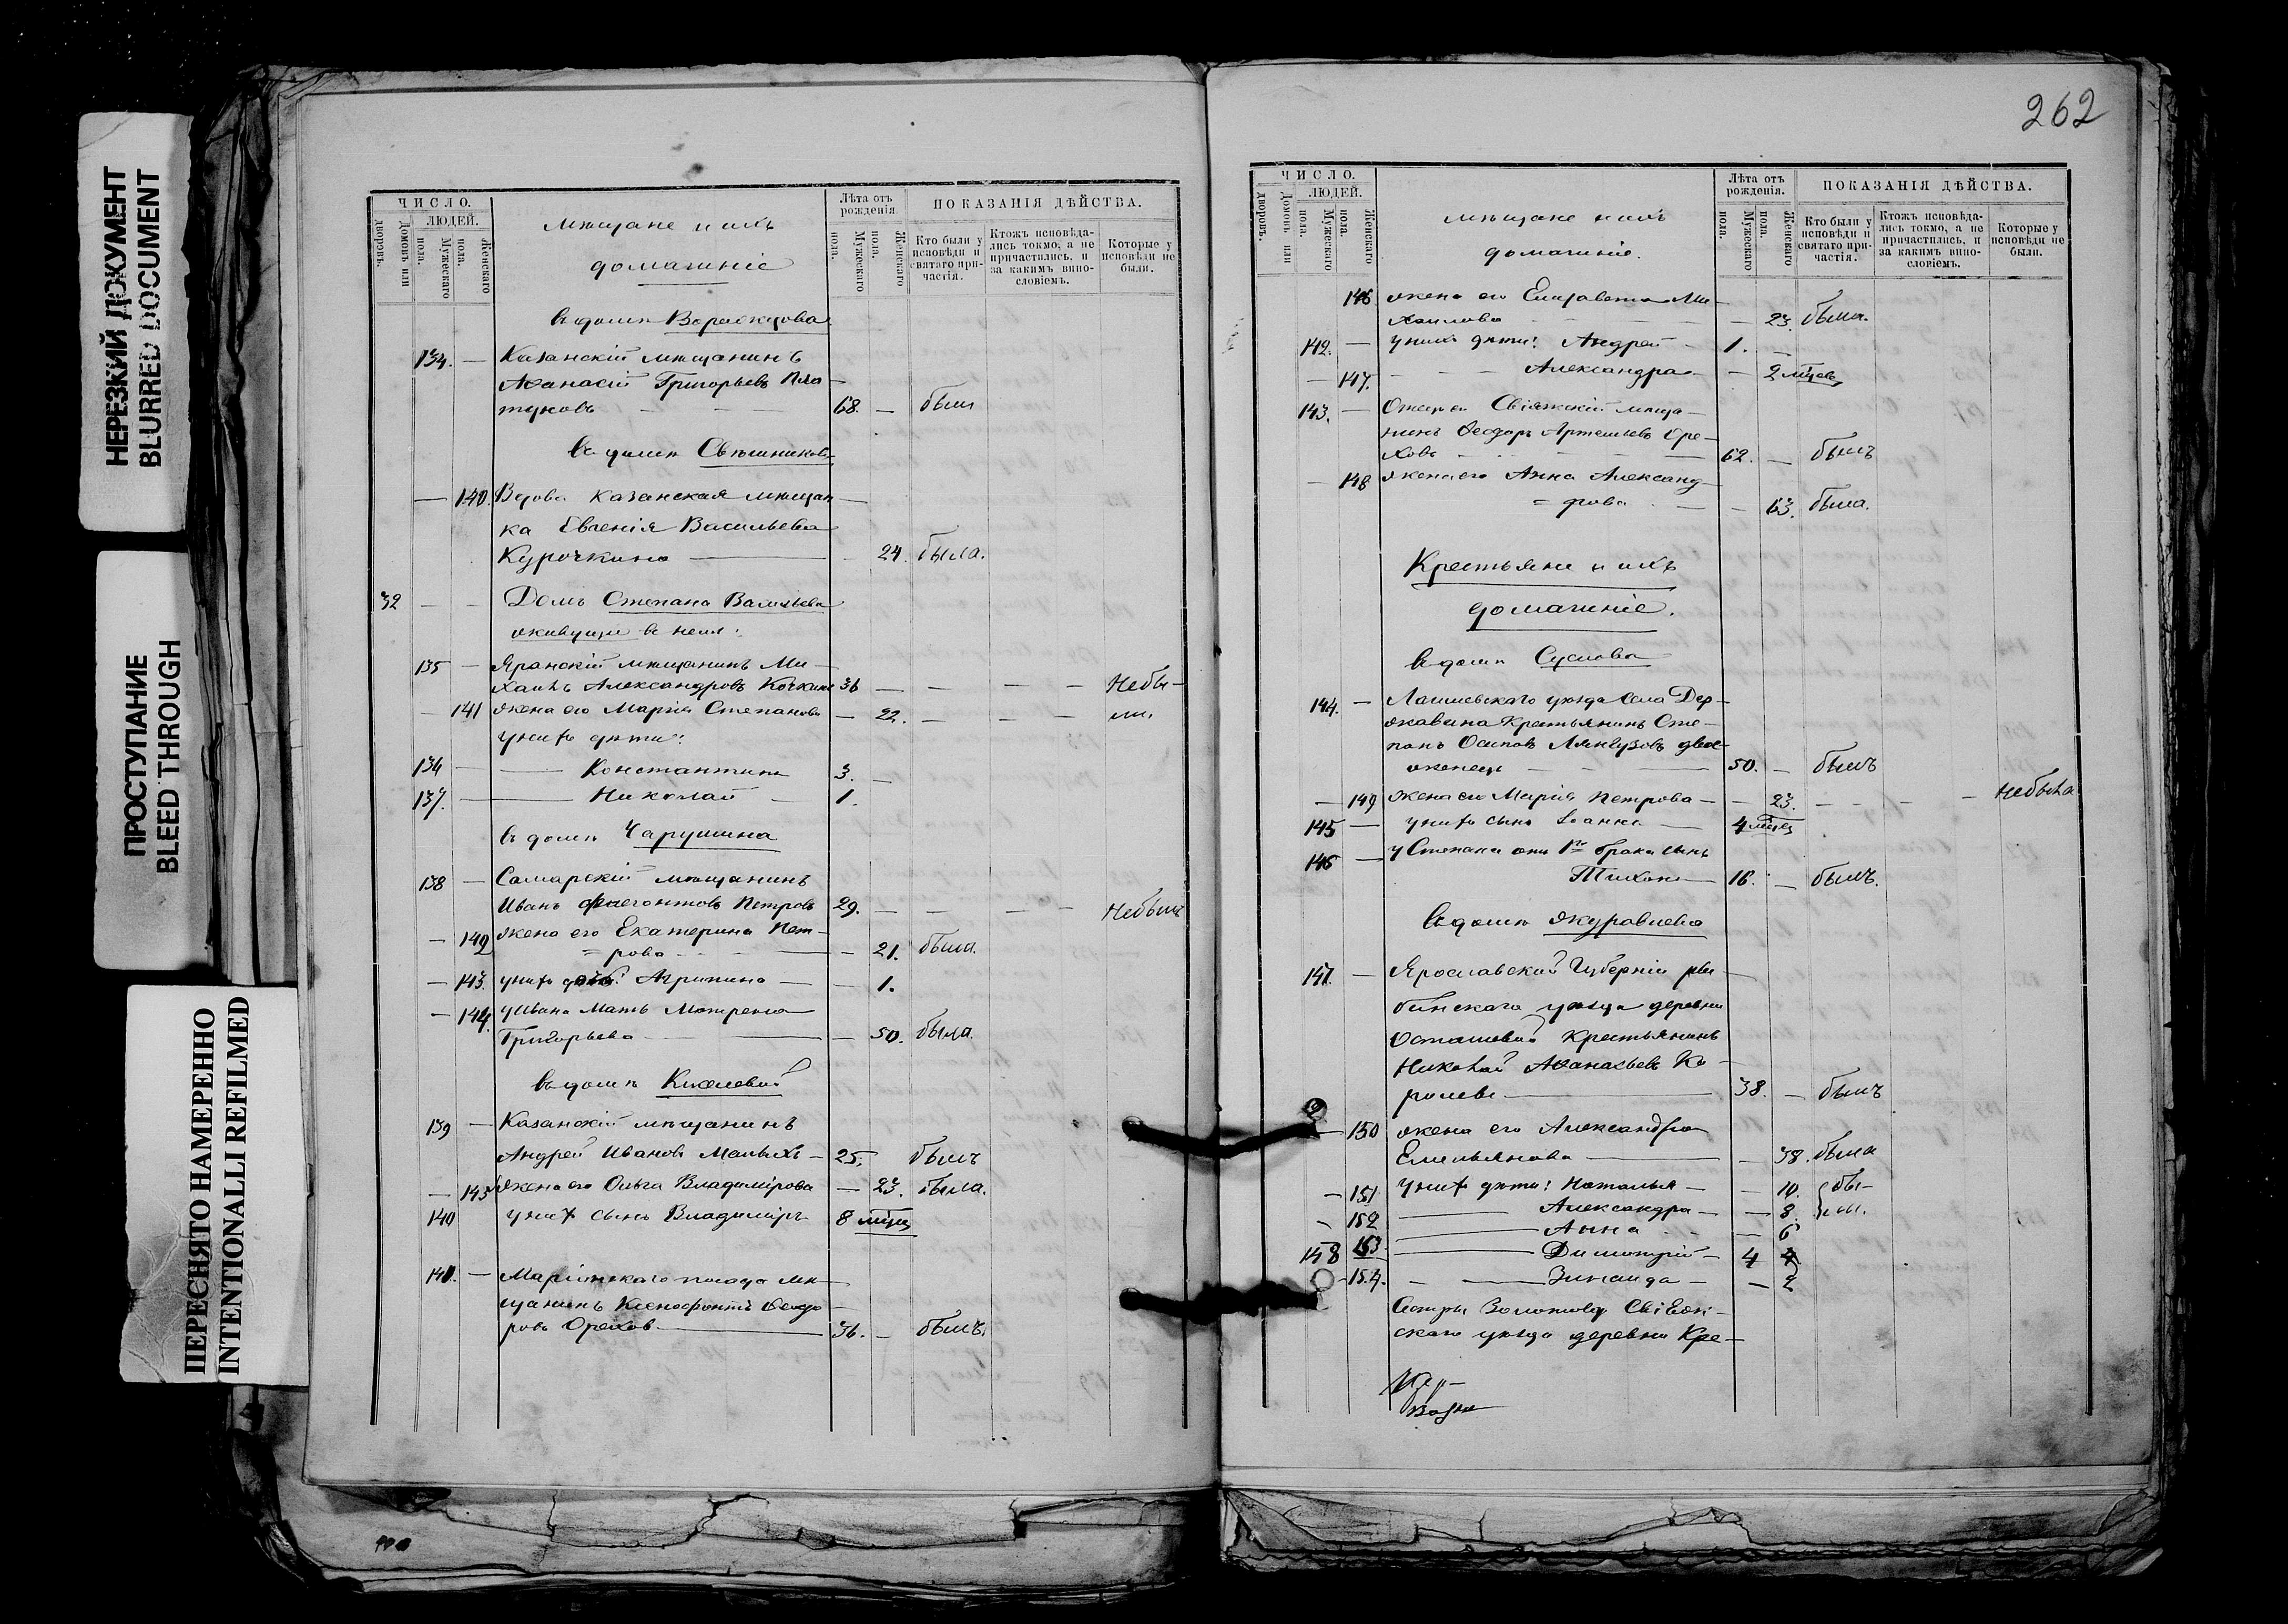 НЕРЕЗКИЙ ДОКУМЕНТ
BLURRED DOCUMENT
ПРОСТУПАНИЕ
BLEED THROUGH
ПЕРЕСНЯТО НАМЕРЕННО
INTENTIONALLI REFILMED
ЧИСЛО.
ЛЮДЕЙ.
Домовъ или дворовъ.
Мужескаго пола.
Женскаго пола.
Мѣщане и ихъ
домашніе
Лѣта отъ рожденія
Мужескаго пола.
Женскаго пола.
ПОКАЗАНІЯ ДѢЙСТВА.
Кто были у исповѣди и святаго причастія.
Ктожъ исповѣдались токмо, а не причастились, и за какимъ винословіемъ.
Которые у исповѣди не были.
въ домѣ
134. — Казанскій мѣщанинъ
Аѳанасій Григорьевъ
68. — былъ
въ домѣ Свѣшникова
— 140. Вдова Казанская мѣщан—
ка Евгенія Васильева
Курочкина — 24. была.
32 — — Домъ Степана Васильева
живущіе въ немъ:
135 — Яранскій мѣщанинъ Ми—
хаилъ Александровъ Кочкинъ 36 — — — — Небы—
— 141 жена его Марія Степанова — 22. — — — ли.
у нихъ дѣти:
136 — — Константинъ 3. —
137. — — Николай — 1.
въ домѣ Чарушина
138 — Самарскій мѣщанинъ
Иванъ Петровъ 29. — — — — Небылъ
— 142 жена его Екатерина Пет—
= рова — — 21. была.
— 143. у нихъ дочь: Агрипина — — 1.
— 144. у Ивана мать Матрена
Григорьева — — 50. была.
въ домѣ Киселевой
139 — Казанскій мѣщанинъ
Андрей Ивановъ Малыхъ — 25. былъ
— 145 жена его Ольга Владимірова — 23. была.
140 у нихъ сынъ Владиміръ 8 мѣсц
141. — Маріинскаго посада мѣ—
щанинъ Ксенофонтъ Ѳеодо—
ровъ Орехов — 36. — былъ.
262
ЧИСЛО.
ЛЮДЕЙ.
Домовъ или дворовъ.
Мужескаго пола.
Женскаго пола.
мѣщане и ихъ
домашніе.
Лѣта отъ рожденія.
Мужескаго пола.
Женскаго пола.
ПОКАЗАНІЯ ДѢЙСТВА.
Кто были у исповѣди и святаго причастія.
Ктожъ исповѣдались токмо, а не причастились, и за какимъ винословіемъ.
Которые у исповѣди не были.
146 жена его Елизавета Ми—
хаилова — 23. была.
142. — у нихъ дѣти: Андрей — 1. —
— 147. — — — Александра — — 2 мѣсц
143. — Отецъ его Свіяжскій мѣща—
нинъ Ѳеодоръ Артемьевъ Оре—
ховъ — 62. — былъ
— 148 жена его Анна Александ—
= рова. — — 63. была.
Крестьяне и ихъ
домашніе.
въ домѣ Суслова
144. — Лаишевскаго уѣзда села Дер—
жавина Крестьянинъ Сте—
панъ Осиповъ двое—
женецъ — 50. — былъ
— 149 жена его Марія Петрова — — 23. — — — — небыла
145 — у нихъ сынъ Іоаннъ — 4 мѣсц
146 — у Степана отъ 1го брака сынъ
Тихонъ — 16. — былъ.
въ домѣ Журавлева
147. — Ярославской Губерніи Ры—
бинскаго уѣзда деревни
Осташевой Крестьянинъ
Николай Аѳанасьевъ Ко—
ролевъ — 38. — былъ
— 150 жена его Александра
Емельянова — — 38. была
— 151 у нихъ дѣти: Наталья — — 10. { бы—
— 152 — Александра — — 8. { ли.
153 — Анна — 6
148 — Димитрій — 4
— 154. — — Зинаида — — 2
уѣзда деревни Кре—